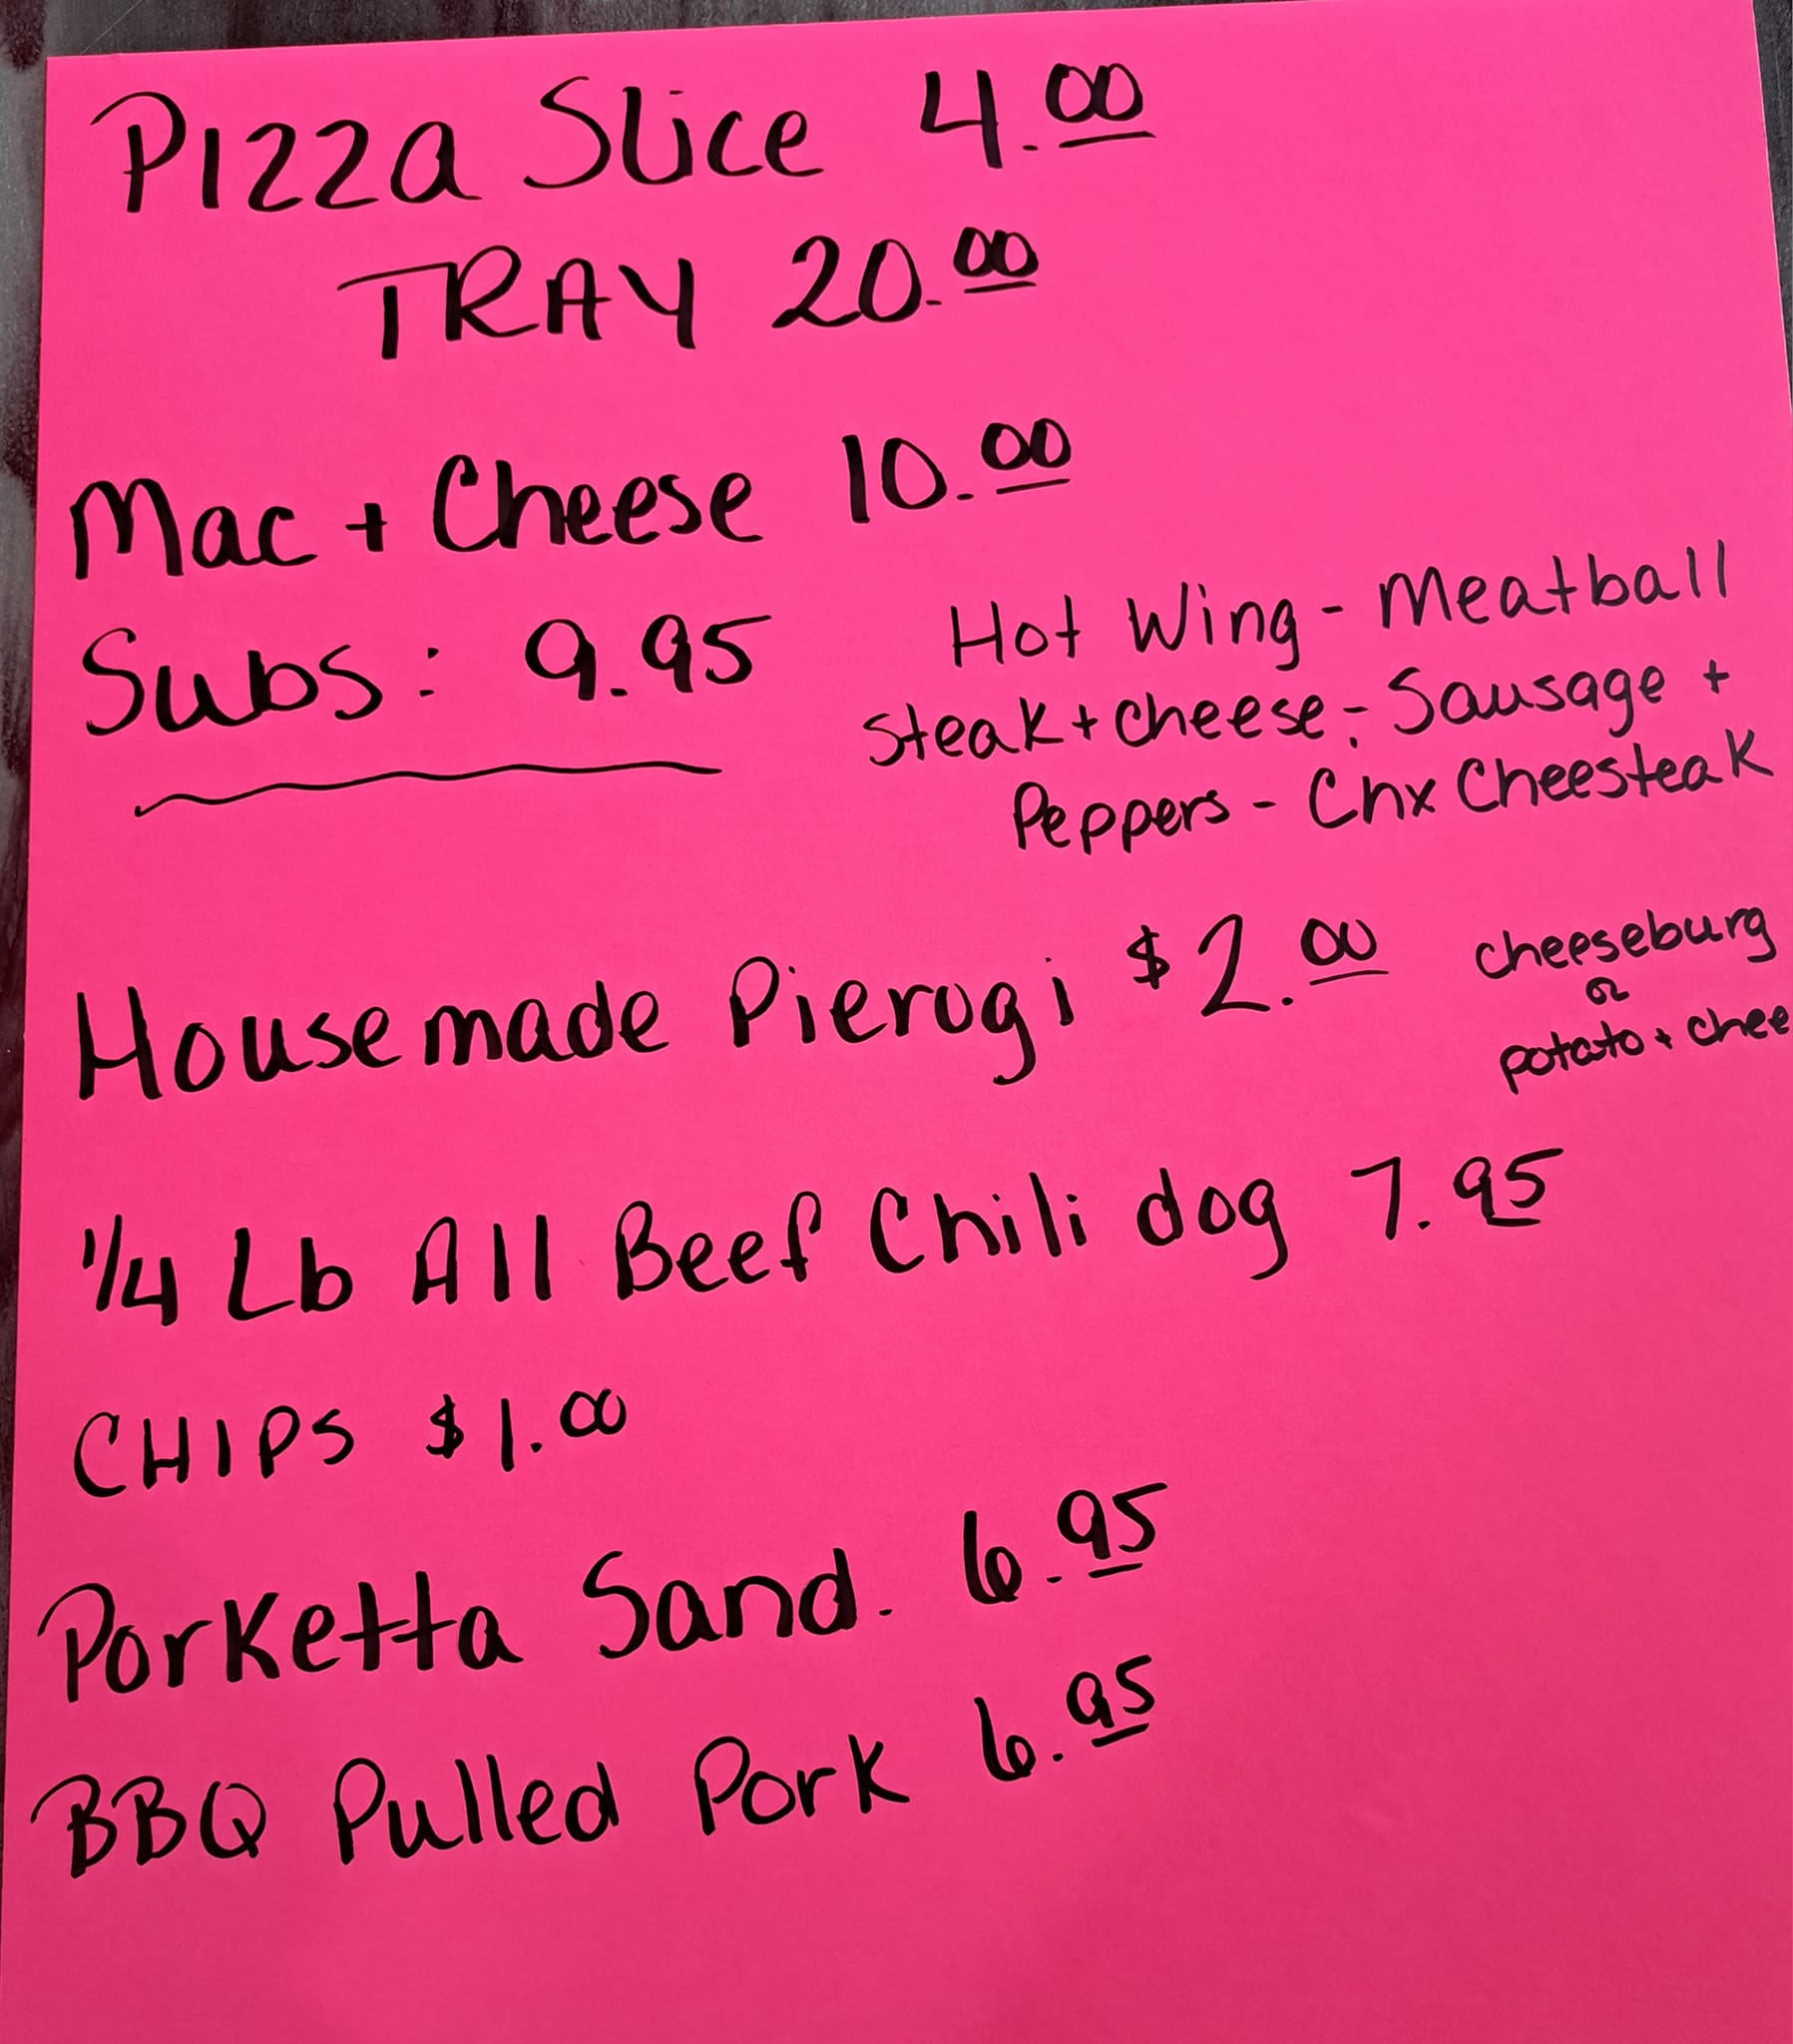 Pizza Slice 4.00
TRAY 20.00
Mac + Cheese 10.00
Subs: 9.95
Hot Wing - Meatball
Steak + cheese - Sausage +
Peppers - Chx Cheesteak
Housemade Pierogi $2.00
cheeseburg
or
potato + chee
1/4 Lb All Beef Chili dog 7.95
CHIPS $1.00
Porketta Sand. 6.95
BBQ Pulled Pork 6.95